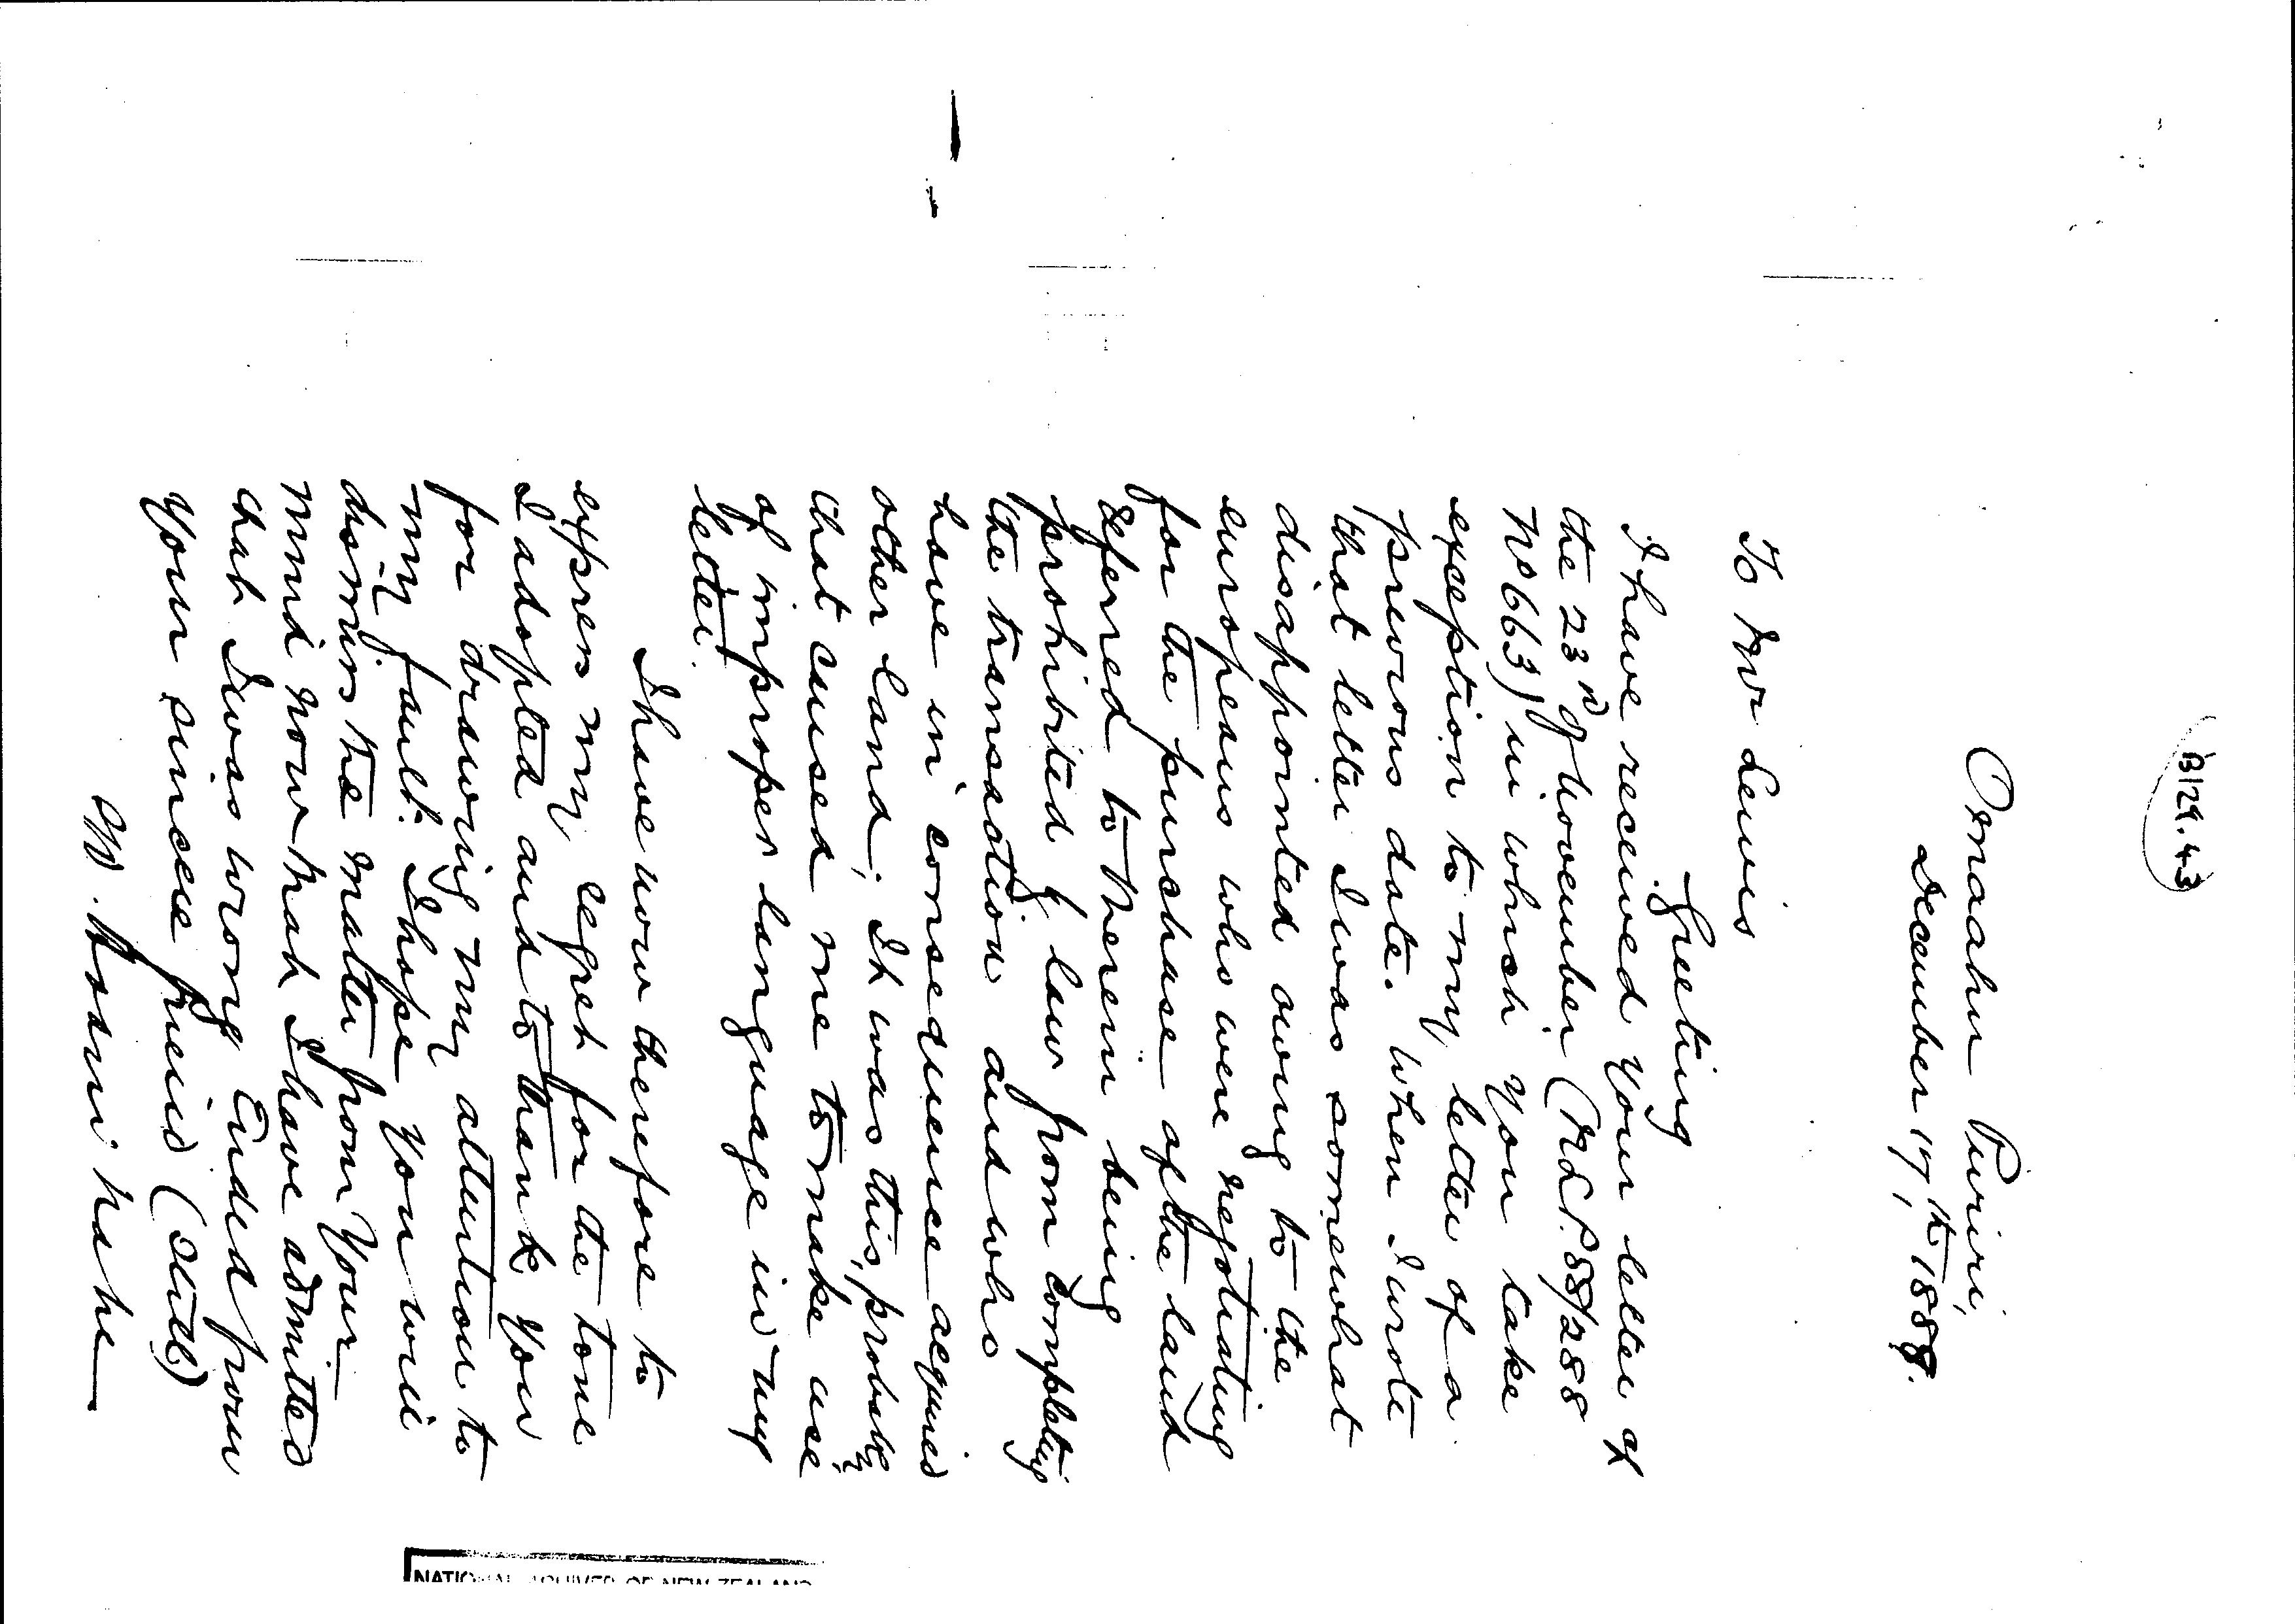 B129.43
Omaahu Puriri,
December 17th 1888.
To Mr Lewis
Greeting
I have received your letter of
the 23rd of November (NLP. 88/288
No 663) in which you take
exception to my letter of a
previous date. When I wrote
that letter I was somewhat
disappointed owing to the
europeans who were negotiating
for the purchase of the land
referred to therein being
prohibited by law from completing
the transaction and who
have in consequence acquired
other land; It was this, probably
that caused me to make use
of improper language in my
letter.
I have now therefore to
express my regret for the tone
I adopted and to thank you
for drawing my attention to
my fault. I hope you will
dismiss the matter from your
mind now that I have admitted
that I was wrong Ended from
your sincere friend
W. Hoani Nahe
NATIONAL ARCHIVES OF NEW ZEALAND